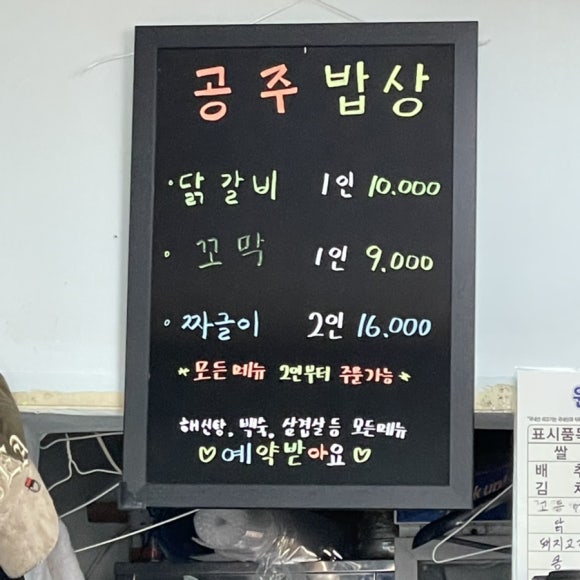 공주 밥상
· 닭갈비 1인 10.000
· 꼬막 1인 9.000
· 짜글이 2인 16.000
* 모든메뉴 2인부터 주문가능 *
해신탕, 백숙, 삼겹살 등 모든메뉴
♡ 예약받아요 ♡
표시품목
쌀
배추
김치
닭
돼지고기